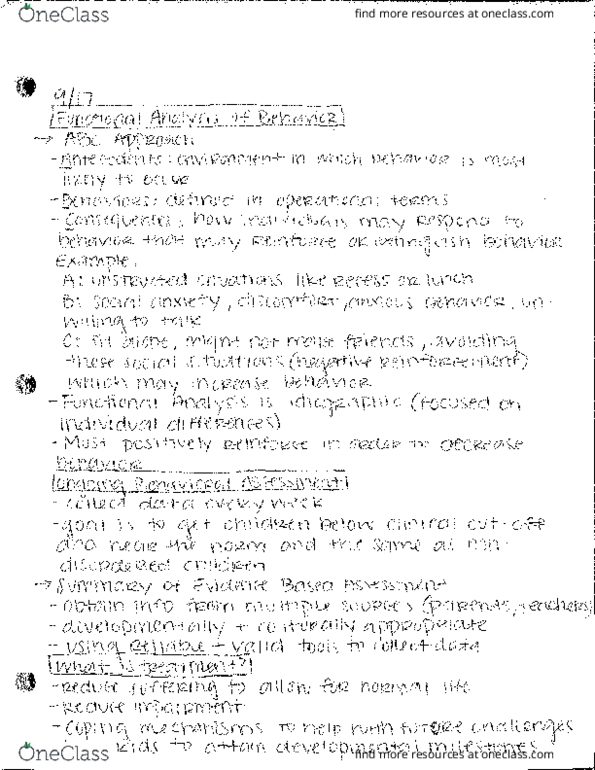 OneClass
find more resources at oneclass.com
9/17
Functional Analysis of Behavior
→ ABC Approach
- Antecedents: environment in which behavior is most
likely to occur
- Behaviors: defined in operational terms
- Consequences: how individuals may respond to
behavior that may reinforce or extinguish behavior
Example:
A: unstructed situations like recess or lunch
B: social anxiety, discomfort, anxious behavior, un-
willing to talk
C: sit alone, might not make friends, avoiding
these social situations (negative reinforcement)
which may increase behavior
- Functional Analysis is idiographic (focused on
individual differences)
- Must positively reinforce in order to decrease
behavior
Ongoing Behavioral Assessment
- collect data every week
- goal is to get children below clinical cut-off
and near the norm and the same as non-
disordered children
→ Summary of Evidence Based Assessment
- obtain info from multiple sources (parents, teachers)
- developmentally + culturally appropriate
- using reliable + valid tools to collect data
What is treatment?
- reduce suffering to allow for normal life
- reduce impairment
- coping mechanisms to help with future challenges
kids to attain developmental milestones
OneClass
find more resources at oneclass.com